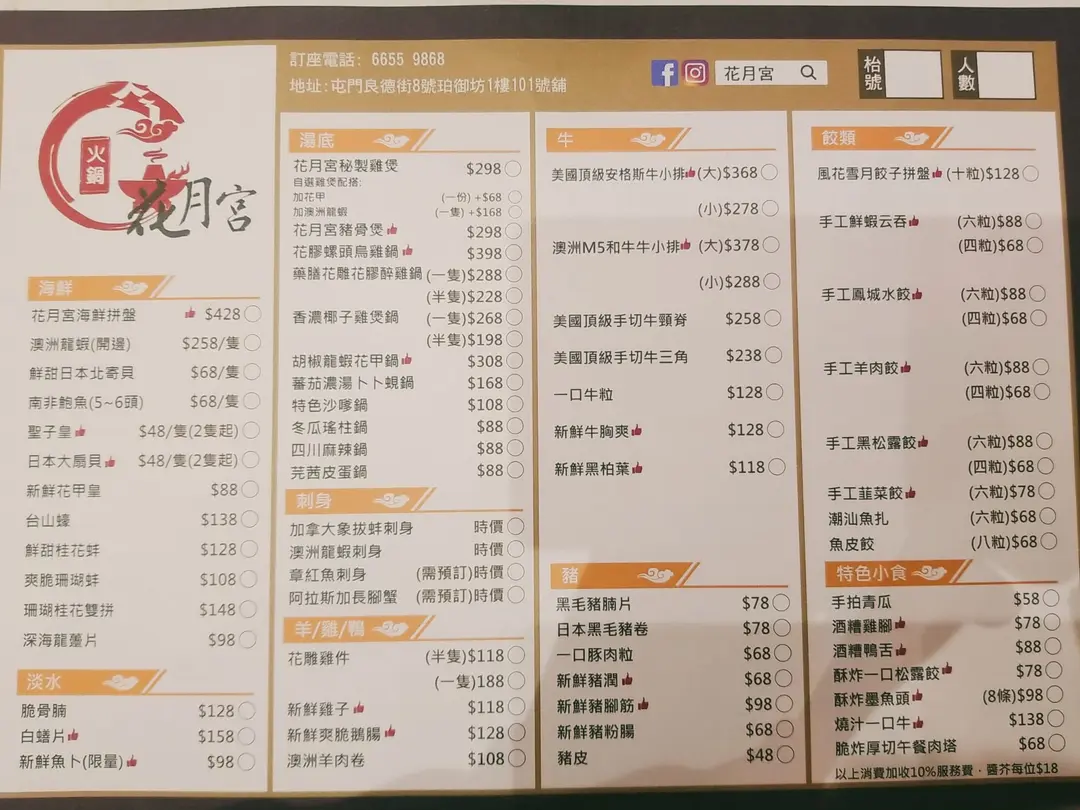 火鍋
花月宮
訂座電話: 6655 9868
地址:屯門良德街8號珀御坊1樓101號舖
花月宮
枱號
人數
海鮮
花月宮海鮮拼盤 $428
澳洲龍蝦(開邊) $258/隻
鮮甜日本北寄貝 $68/隻
南非鮑魚(5~6頭) $68/隻
聖子皇 $48/隻(2隻起)
日本大扇貝 $48/隻(2隻起)
新鮮花甲皇 $88
台山蠔 $138
鮮甜桂花蚌 $128
爽脆珊瑚蚌 $108
珊瑚桂花雙拼 $148
深海龍躉片 $98
淡水
脆骨腩 $128
白鱔片 $158
新鮮魚卜(限量) $98
湯底
花月宮秘製雞煲 $298
自選雞煲配搭:
加花甲 (一份) +$68
加澳洲龍蝦 (一隻) +$168
花月宮豬骨煲 $298
花膠螺頭烏雞鍋 $398
藥膳花雕花膠醉雞鍋 (一隻)$288
(半隻)$228
香濃椰子雞煲鍋 (一隻)$268
(半隻)$198
胡椒龍蝦花甲鍋 $308
蕃茄濃湯卜卜蜆鍋 $168
特色沙嗲鍋 $108
冬瓜瑤柱鍋 $88
四川麻辣鍋 $88
芫茜皮蛋鍋 $88
刺身
加拿大象拔蚌刺身 時價
澳洲龍蝦刺身 時價
章紅魚刺身 (需預訂)時價
阿拉斯加長腳蟹 (需預訂)時價
羊/雞/鴨
花雕雞件 (半隻)$118
(一隻)188
新鮮雞子 $118
新鮮爽脆鵝腸 $128
澳洲羊肉卷 $108
牛
美國頂級安格斯牛小排 (大)$368
(小)$278
澳洲M5和牛牛小排 (大)$378
(小)$288
美國頂級手切牛頸脊 $258
美國頂級手切牛三角 $238
一口牛粒 $128
新鮮牛胸爽 $128
新鮮黑柏葉 $118
豬
黑毛豬腩片 $78
日本黑毛豬卷 $78
一口豚肉粒 $68
新鮮豬潤 $68
新鮮豬腳筋 $98
新鮮豬粉腸 $68
豬皮 $48
餃類
風花雪月餃子拼盤 (十粒)$128
手工鮮蝦云吞 (六粒)$88
(四粒)$68
手工鳳城水餃 (六粒)$88
(四粒)$68
手工羊肉餃 (六粒)$88
(四粒)$68
手工黑松露餃 (六粒)$88
(四粒)$68
手工韮菜餃 (六粒)$78
潮汕魚扎 (六粒)$68
魚皮餃 (八粒)$68
特色小食
手拍青瓜 $58
酒糟雞腳 $78
酒糟鴨舌 $88
酥炸一口松露餃 $78
酥炸墨魚頭 (8條)$98
燒汁一口牛 $138
脆炸厚切午餐肉塔 $68
以上消費加收10%服務費．醬芥每位$18